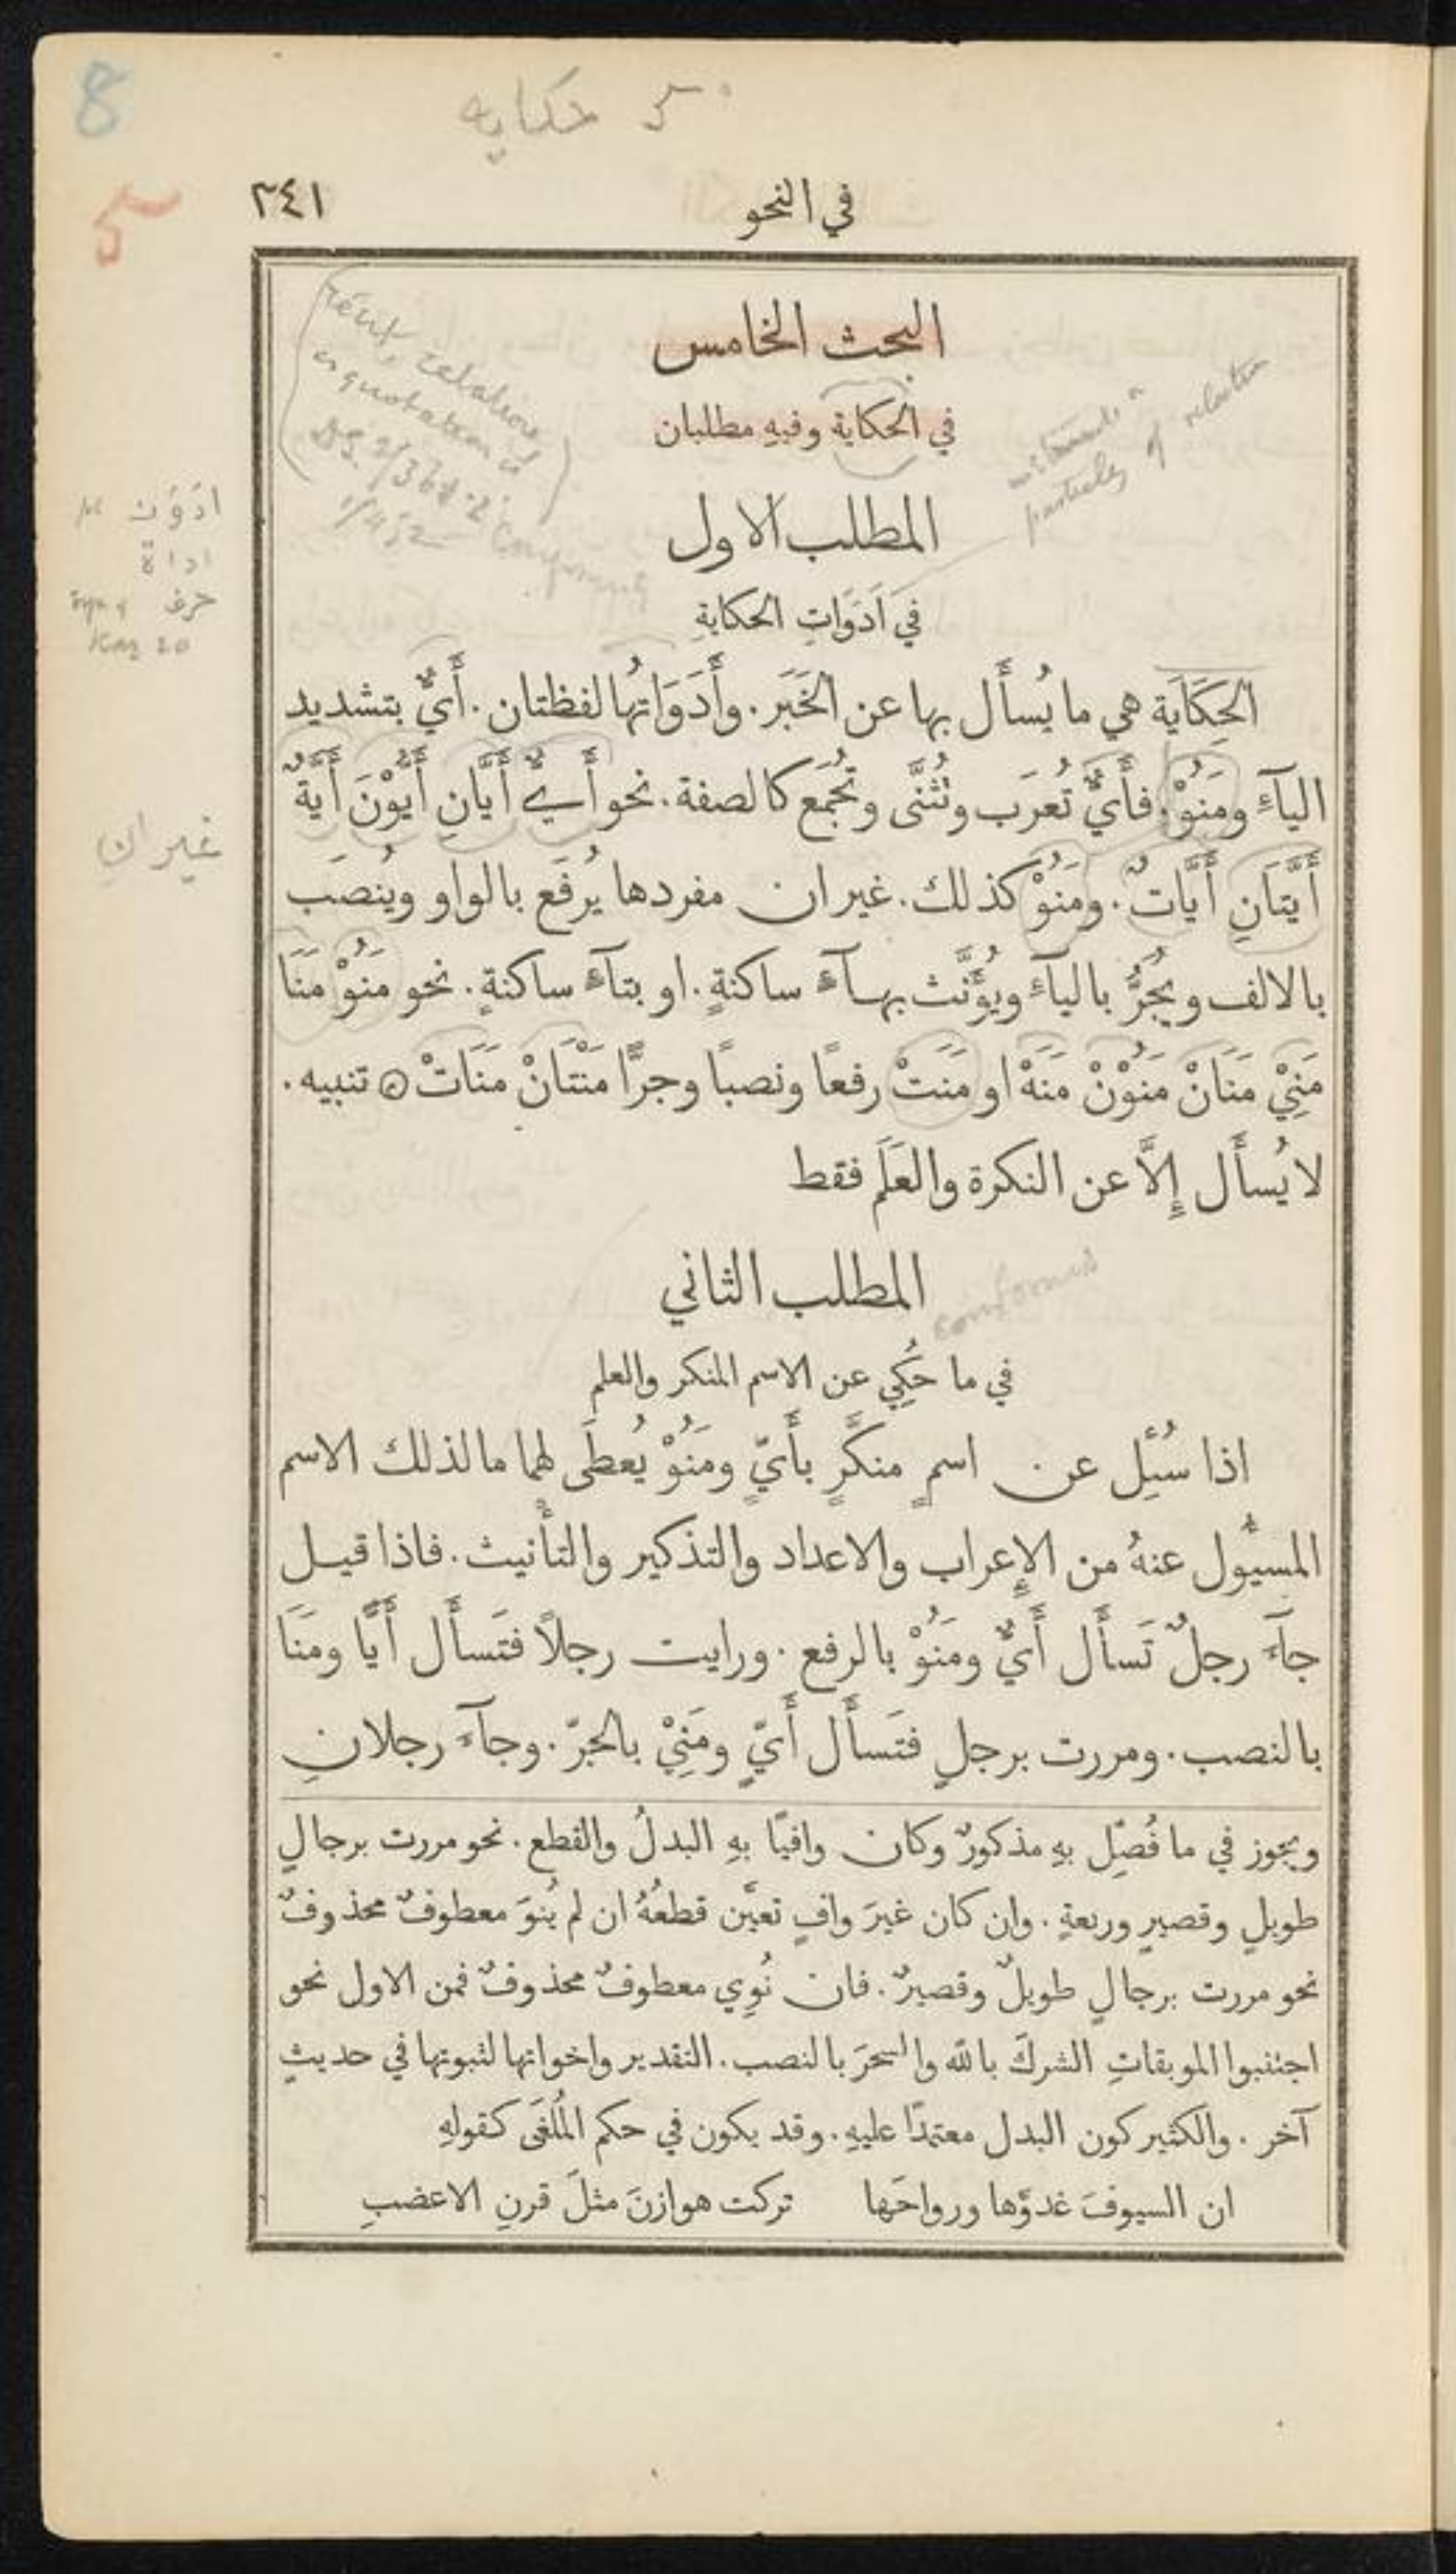 8
حكايه
في النحو
٢٤١
البحث الخامس
في الحكاية وفيهِ مطلبان
particles of relation
المطلب الاول
في أَدَوَاتِ الحكايةِ
اداة
حرف
الحِكَايَة هي ما يُسأَل بها عن الخَبَر. وأَدَوَاتُها لفظتان. أَيٌّ بتشديد
اليآءِ ومَنُوْ. فأَيٌّ تُعرَب وتُثنَّى وتُجْمَع كالصفة. نحو أَيٌّ أَيَّانِ أَيُّوْنَ أَيَّةٌ
غيران
أَيَّتَانِ أَيَّاتٌ. ومَنُوْ كذلك. غير ان مفردها يُرفَع بالواو ويُنصَب
بالالف ويُجَرُّ باليآءِ ويُؤَنَّث بهآءٍ ساكنةٍ. او بتآءٍ ساكنةٍ. نحو مَنُوْ مَنَا
مَنِيْ مَنَانْ مَنُوْنْ مَنَهْ او مَنَتْ رفعًا ونصبًا وجرًّا مَنْتَانْ مَنَاتْ ۞ تنبيه.
لا يُسأَل إِلَّا عن النكرة والعَلَم فقط
المطلب الثاني
في ما حُكِي عن الاسم المنكر والعلم
اذا سُئِل عن اسمٍ منكَّرٍ بأَيّ ومَنُوْ يُعطَى لهما ما لذلك الاسم
المسئُول عنهُ من الإِعراب والاعداد والتذكير والتأنيث. فاذا قيل
جآءَ رجلٌ تَسأَل أَيٌّ ومَنُوْ بالرفع. ورايت رجلاً فتَسأَل أَيًّا ومَنَا
بالنصب. ومررت برجلٍ فتَسأَل أَيٍّ ومَنِيْ بالجرّ. وجآءَ رجلانِ
ويجوز في ما فُصِّل بهِ مذكورٌ وكان وافيًا بهِ البدلُ والقطع. نحو مررت برجالٍ
طويلٍ وقصيرٍ وربعةٍ. وان كان غيرَ وافٍ تعيَّن قطعُهُ ان لم يُنوَ معطوفٌ محذوفٌ
نحو مررت برجالٍ طويلٌ وقصيرٌ. فان نُوِي معطوفٌ محذوفٌ فمن الاول نحو
اجتنبوا الموبقاتِ الشركَ بالله والسحرَ بالنصب. التقدير واخواتها لثبوتها في حديثٍ
آخر. والكثير كون البدل معتمدًا عليهِ. وقد يكون في حكم المُلغَى كقولهِ
ان السيوفَ غدوَّها ورواحَها تركت هوازنَ مثلَ قرنِ الاعضبِ